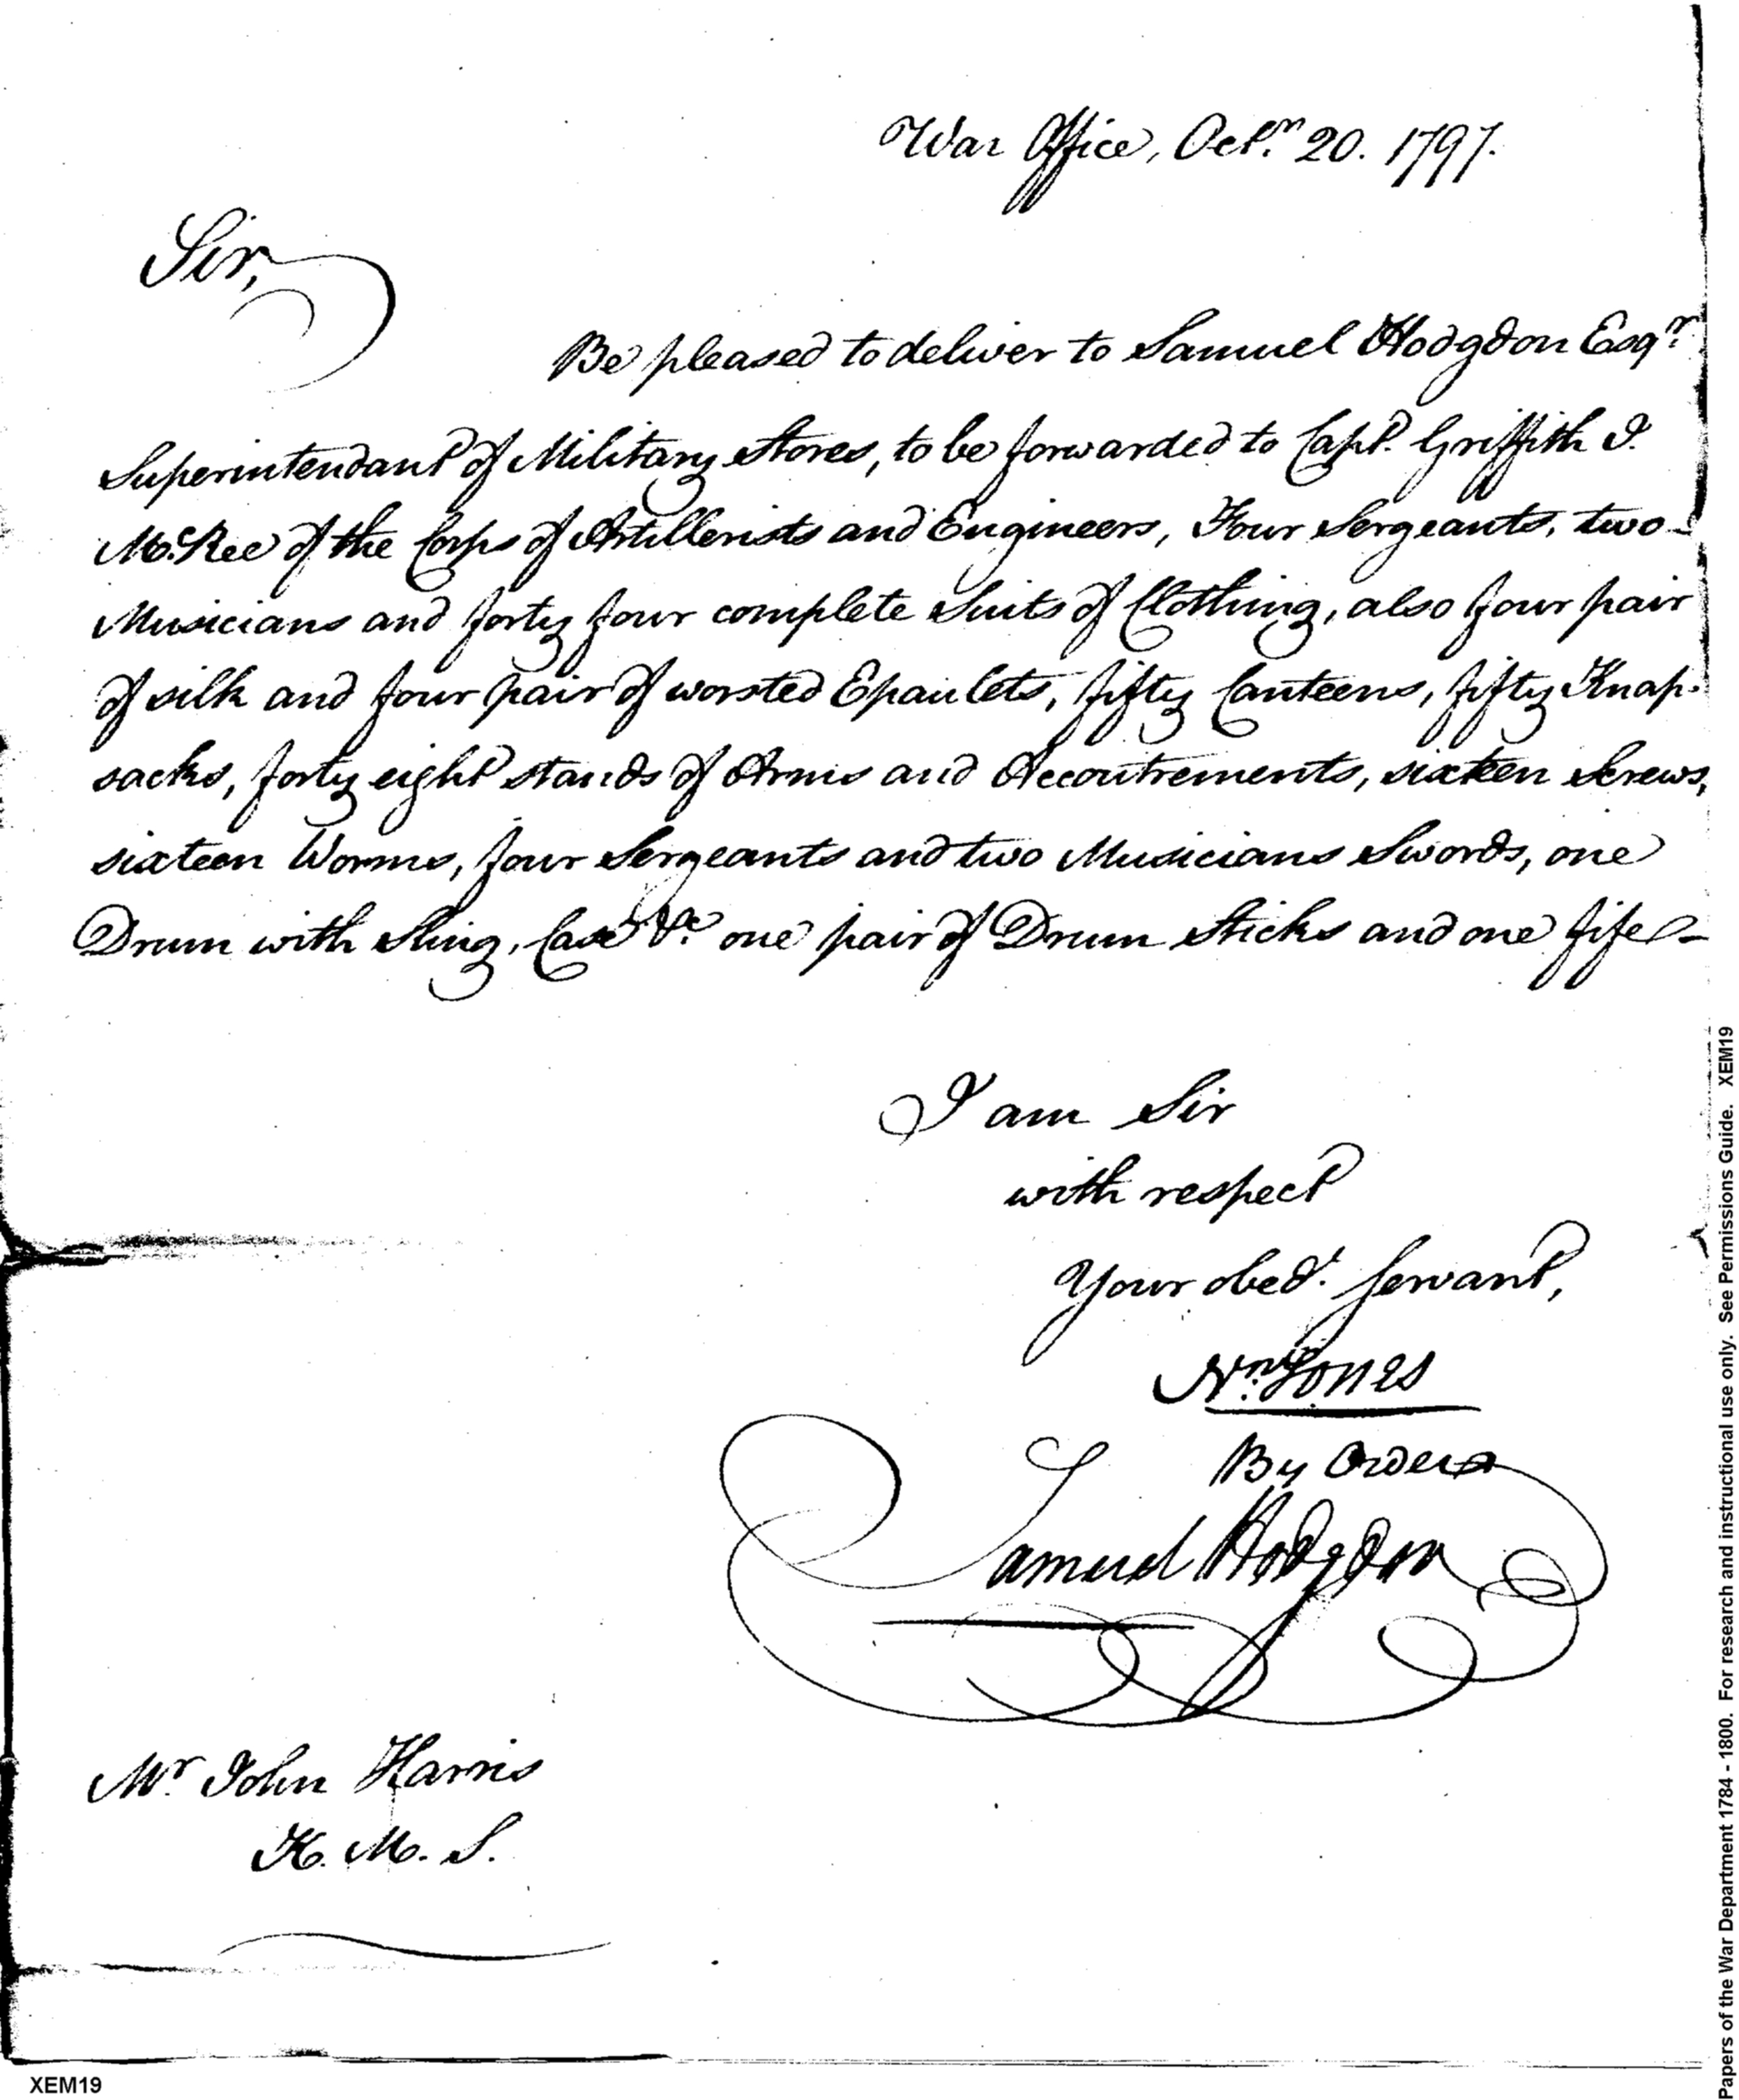 War Office, Octr. 20. 1797.
Sir,
Be pleased to deliver to Samuel Hodgdon Esqr.
Superintendant of Military Stores, to be forwarded to Capt. Griffith I.
McRee of the Corps of Artillerists and Engineers, Four Sergeants, two
Musicians and forty four complete Suits of Clothing, also four pair
of silk and four pair of worsted Epaulets, fifty Canteens, fifty Knap-
sacks, forty eight stands of Arms and Accoutrements, sixteen Screws,
sixteen Worms, four Sergeants and two Musicians Swords, one
Drum with Sling, Case &c one pair of Drum Sticks and one fife
I am Sir
with respect
Your obedt. Servant,
Nn. Jones
By Order
Samuel Hodgdon
Mr. John Harris
K. M. S.
XEM19
Papers of the War Department 1784 - 1800. For research and instructional use only. See Permissions Guide. XEM19